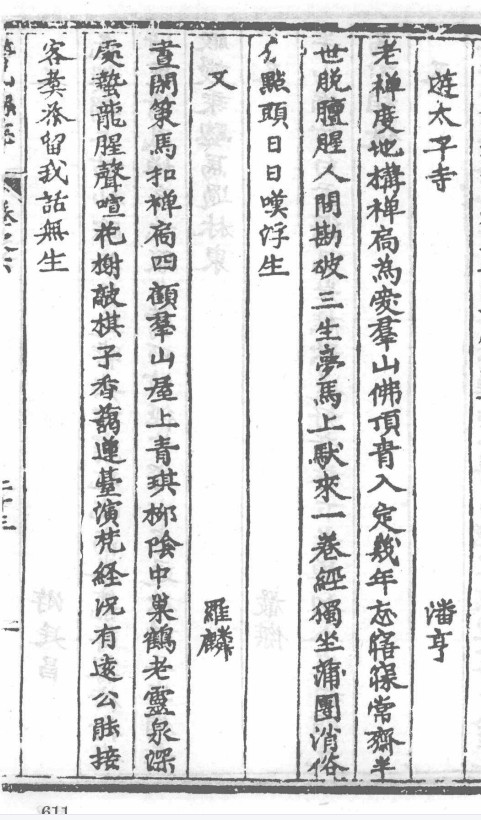 遊太子寺 潘亨
老禅度地搆禅扃為愛羣山佛頂青入定幾年忘寤寐常齋半
世脱膻腥人間勘破三生夢馬上馱來一卷經獨坐蒲團消俗
點頭日日嘆浮生
又 羅麟
晝閑策馬扣禅扃四顧羣山屋上青琪栁陰中巢鶴老靈泉深
處蟄龍腥聲喧花榭敲棋子香藹蓮臺演梵経况有逺公能接
客留我話無生
卷之六 二十三
611